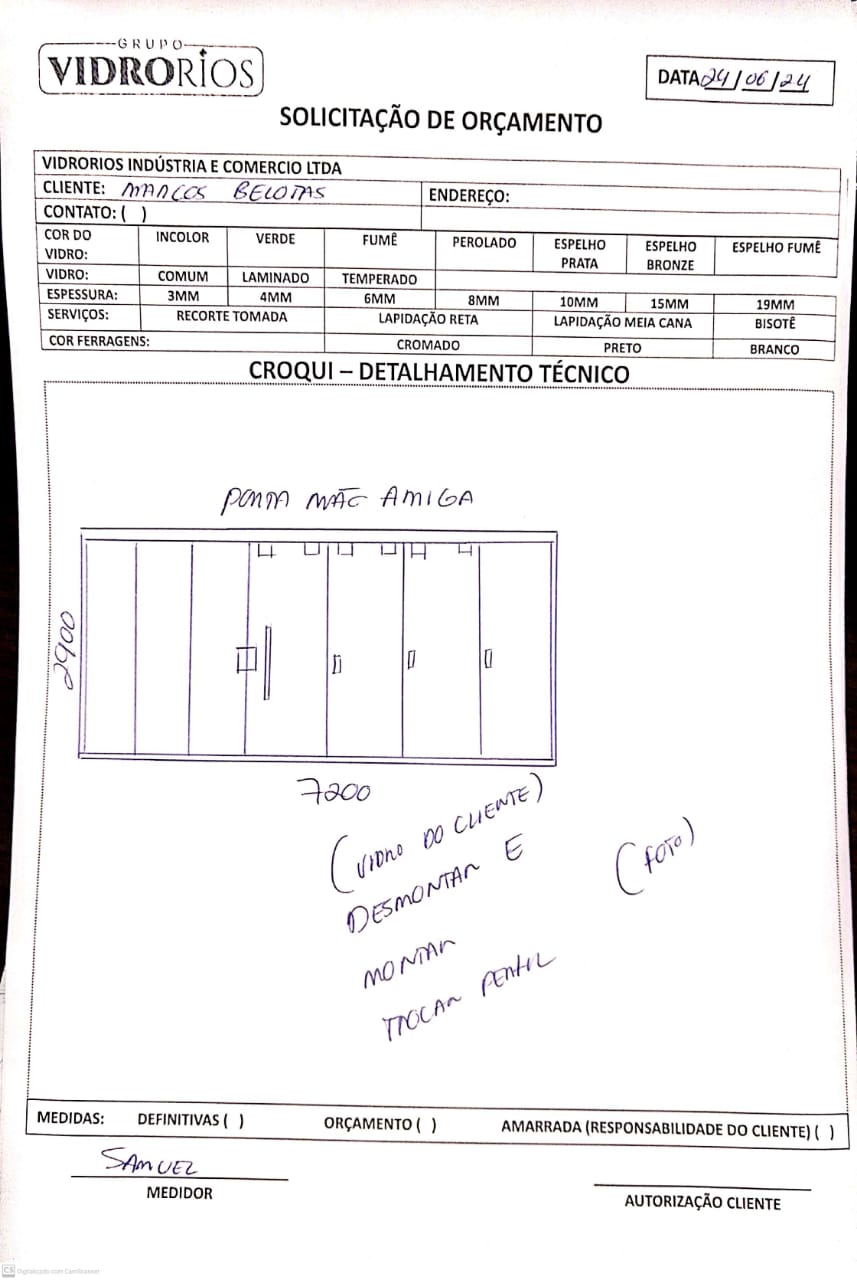 GRUPO
VIDRORIOS
DATA 24/06/24
SOLICITAÇÃO DE ORÇAMENTO
VIDRORIOS INDÚSTRIA E COMERCIO LTDA
CLIENTE: MARCOS BELOTAS
ENDEREÇO:
CONTATO: ( )
COR DO VIDRO: INCOLOR VERDE FUMÊ PEROLADO ESPELHO PRATA ESPELHO BRONZE ESPELHO FUMÊ
VIDRO: COMUM LAMINADO TEMPERADO
ESPESSURA: 3MM 4MM 6MM 8MM 10MM 15MM 19MM
SERVIÇOS: RECORTE TOMADA LAPIDAÇÃO RETA LAPIDAÇÃO MEIA CANA BISOTÊ
COR FERRAGENS: CROMADO PRETO BRANCO
CROQUI – DETALHAMENTO TÉCNICO
PORTA MÃO AMIGA
2900
7200
(VIDRO DO CLIENTE)
DESMONTAR E
(FOTO)
MONTAR
TROCAR PERFIL
MEDIDAS: DEFINITIVAS ( ) ORÇAMENTO ( ) AMARRADA (RESPONSABILIDADE DO CLIENTE) ( )
SAMUEL
MEDIDOR
AUTORIZAÇÃO CLIENTE
CS Digitalizado com CamScanner